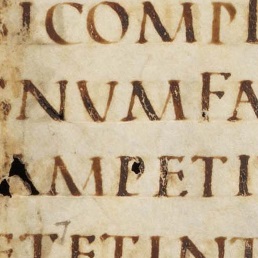 ICOMPL
NUMFA
AMPETI
ETETINT